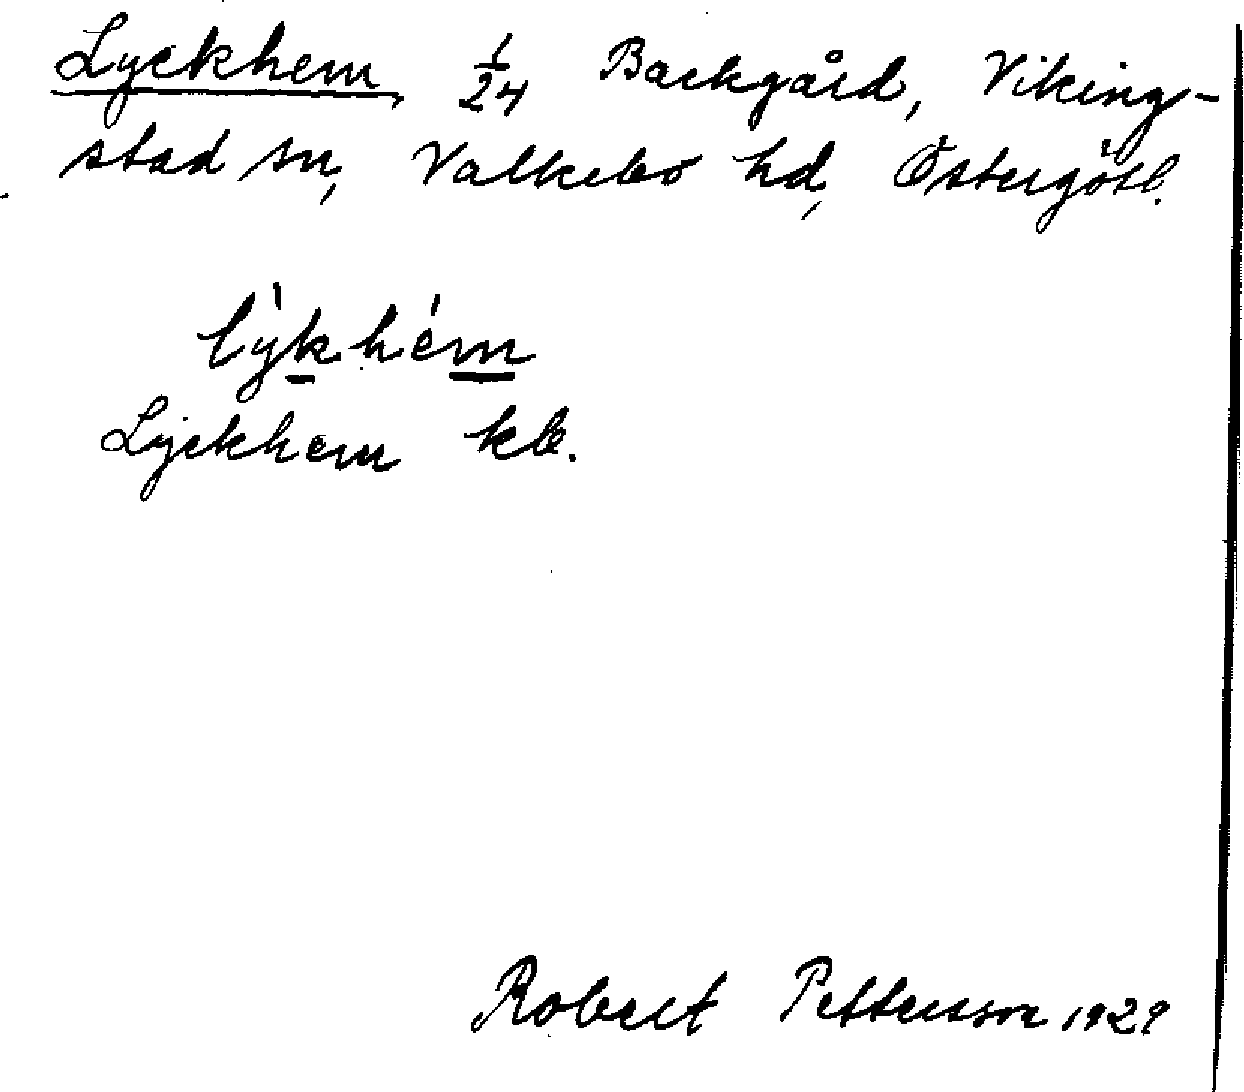 Lyckhem, 1/24 Backgård, Viking-
stad sn, Valkebo hd, Östergötl.
lỳkhém
Lyckhem kb.
Robert Pettersson 1929